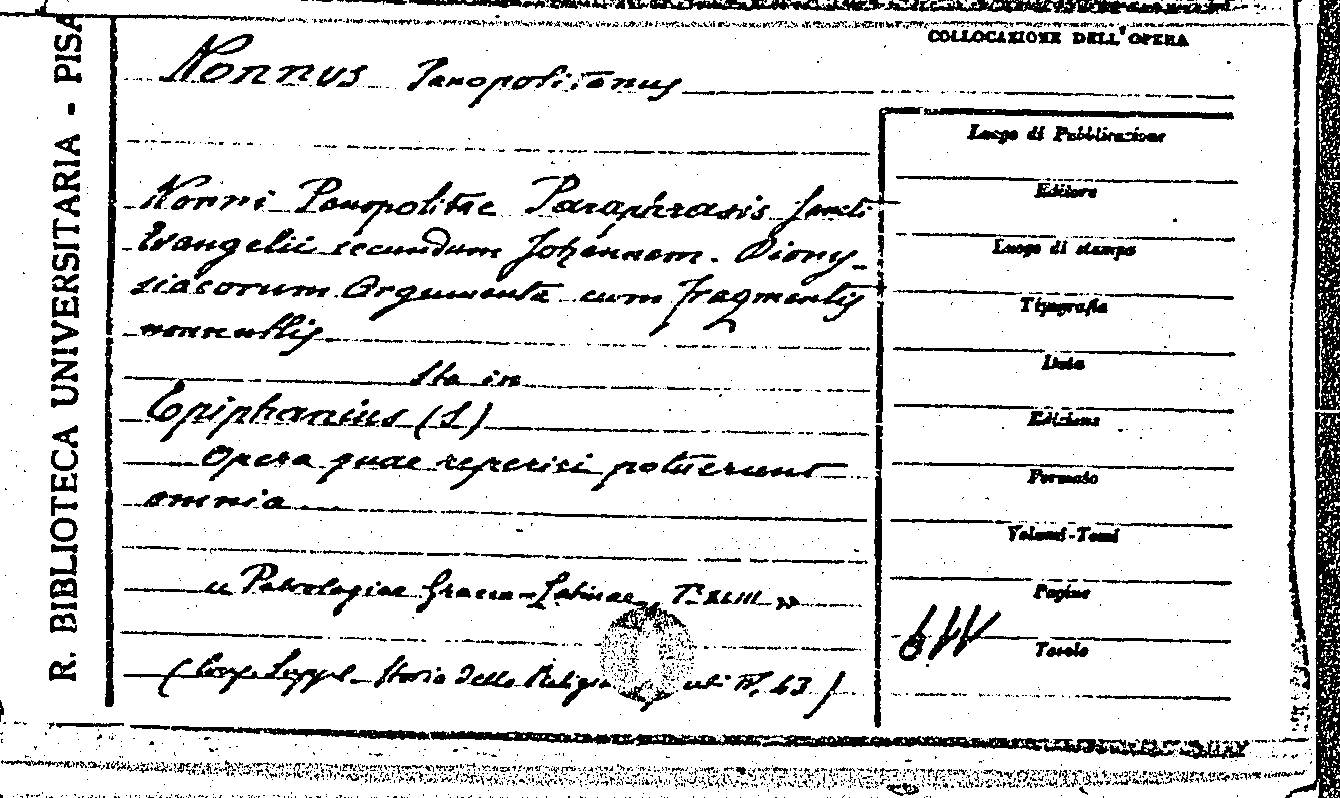 R. BIBLIOTECA UNIVERSITARIA - PISA
COLLOCAZIONE DELL'OPERA
Nonnus Panopolitanus
Nonni Panopolitae Paraphrasis Sancti
Evangelii secundum Johannem. Diony-
siacorum Argumenta cum fragmentis
nonnullis
Sta in
Epiphanius (S)
Opera quae reperiri potuerunt
omnia
" Patrologiae Graeco-Latinae, T. XLIII "
( Suppl. Storia delle 63 )
Luogo di Pubblicazione
Editore
Luogo di stampa
Tipografia
Data
Edizione
Formato
Volumi-Tomi
Pagine
Tavole